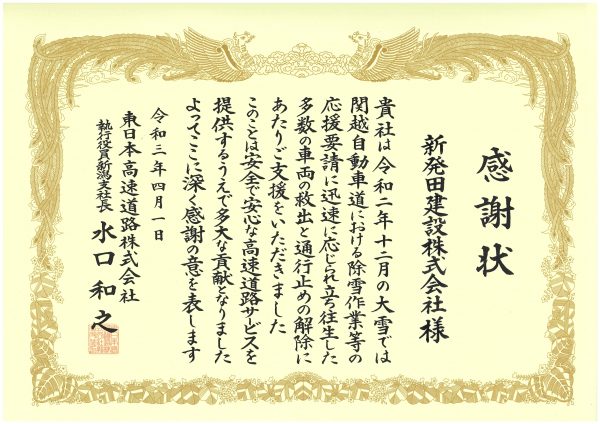 感謝状
新発田建設株式会社様
貴社は令和二年十二月の大雪では
関越自動車道における除雪作業等の
応援要請に迅速に応じられ立ち往生した
多数の車両の救出と通行止めの解除に
あたりご支援をいただきました
このことは安全で安心な高速道路サービスを
提供するうえで多大な貢献となりました
よってここに深く感謝の意を表します
令和三年四月一日
東日本高速道路株式会社
執行役員新潟支社長 水口和之